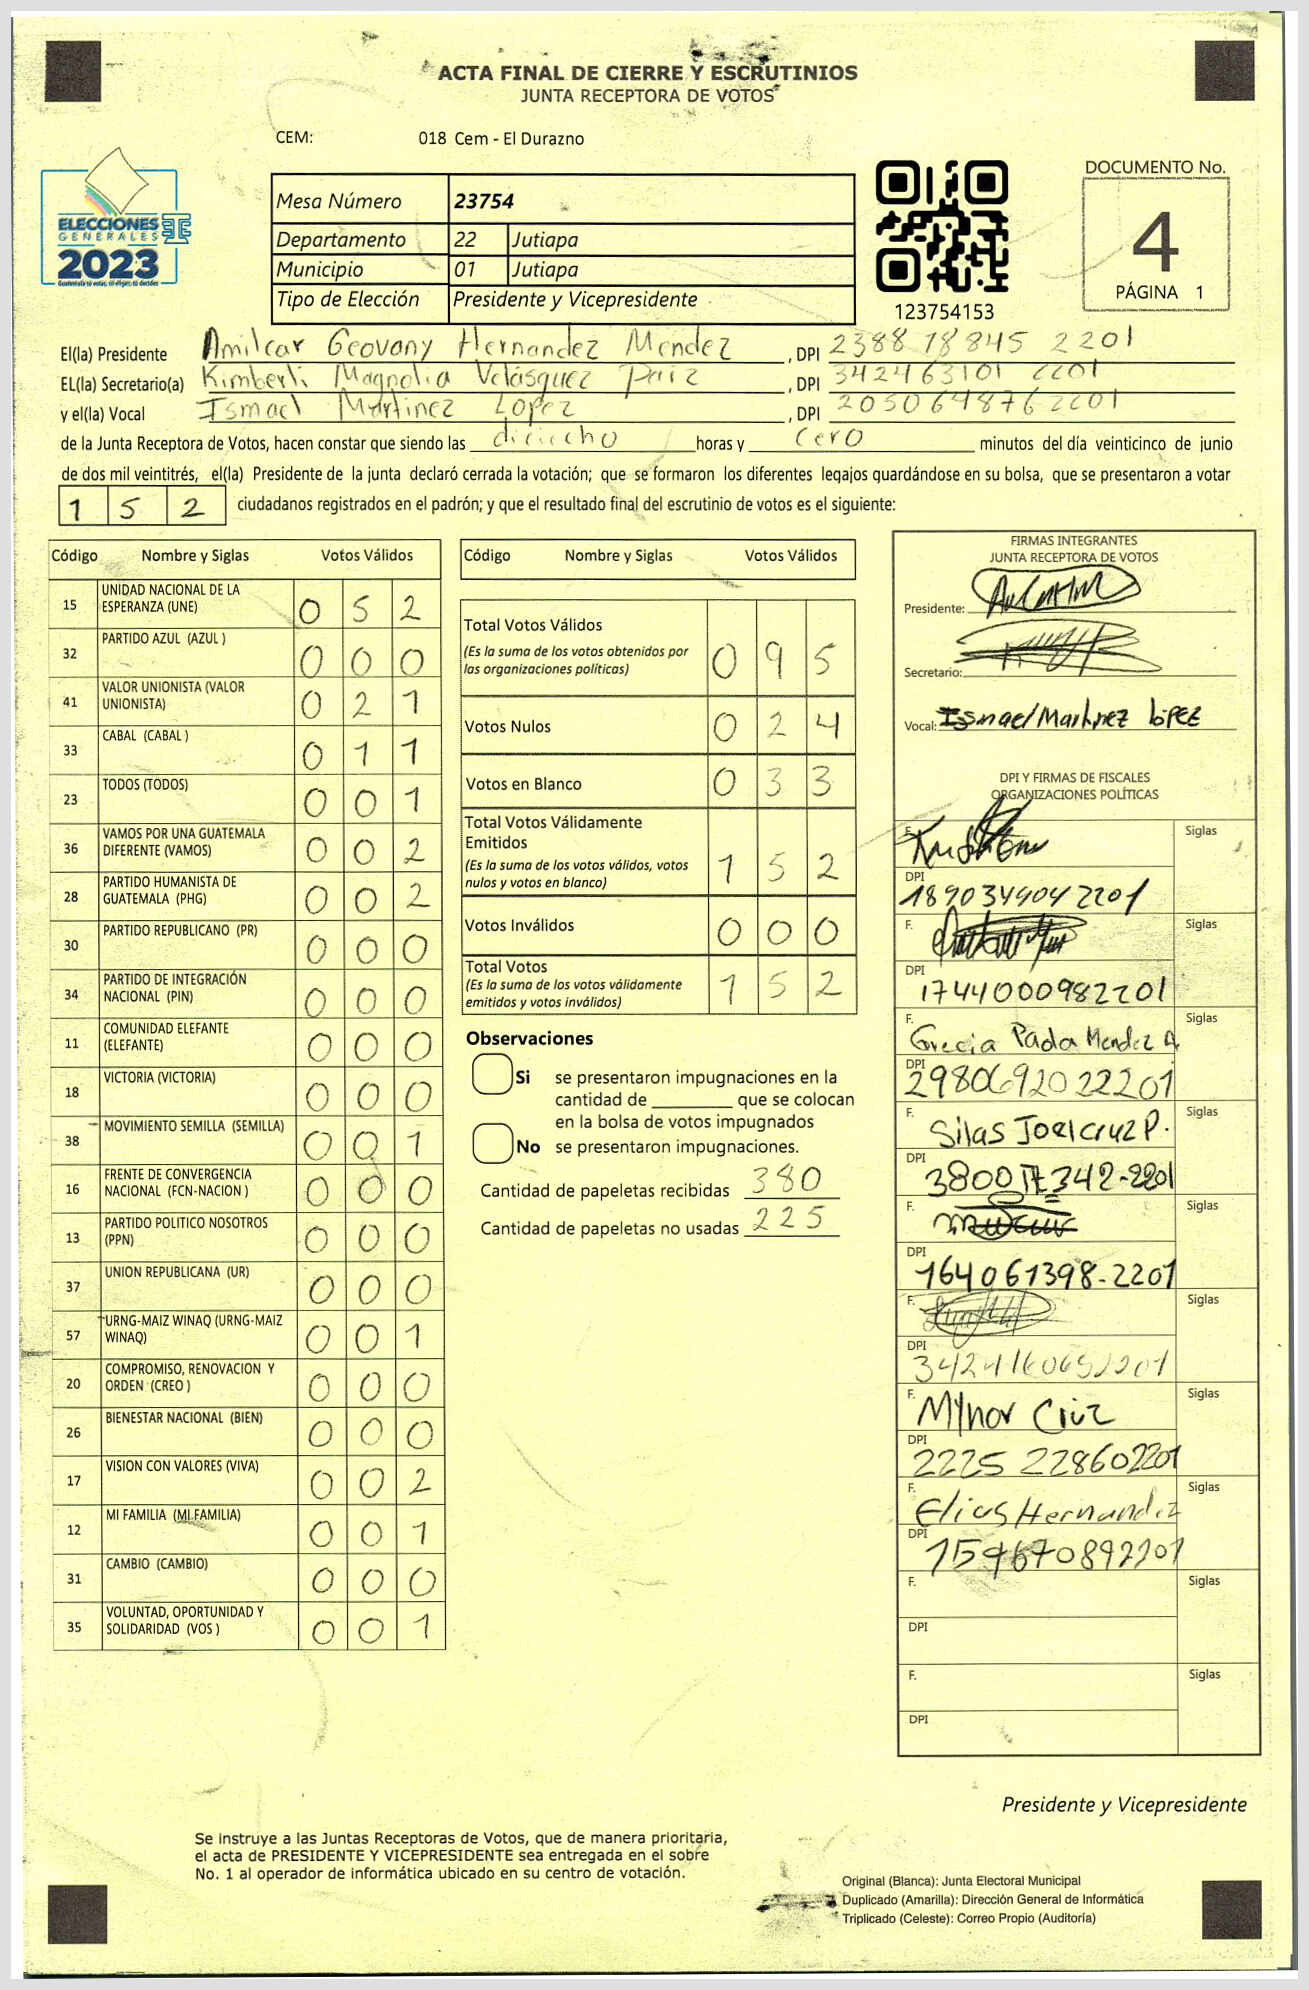 ACTA FINAL DE CIERRE Y ESCRUTINIOS
JUNTA RECEPTORA DE VOTOS
CEM: 018 Cem - El Durazno
ELECCIONES
GENERALES
2023
Mesa Número 23754
Departamento 22 Jutiapa
Municipio 01 Jutiapa
Tipo de Elección Presidente y Vicepresidente
123754153
DOCUMENTO No.
4
PÁGINA 1
El(la) Presidente Amilcar Geovany Hernandez Mendez , DPI 2388 18845 2201
EL(la) Secretario(a) Kimberli Magnolia Velásquez Paiz , DPI 342463101 2201
y el(la) Vocal Ismael Martinez Lopez , DPI 2050648762201
de la Junta Receptora de Votos, hacen constar que siendo las dieciocho horas y cero minutos del día veinticinco de junio
de dos mil veintitrés, el(la) Presidente de la junta declaró cerrada la votación; que se formaron los diferentes legajos guardándose en su bolsa, que se presentaron a votar
1 5 2 ciudadanos registrados en el padrón; y que el resultado final del escrutinio de votos es el siguiente:
Código Nombre y Siglas Votos Válidos
15 UNIDAD NACIONAL DE LA
ESPERANZA (UNE) 0 5 2
32 PARTIDO AZUL (AZUL ) 0 0 0
41 VALOR UNIONISTA (VALOR
UNIONISTA) 0 2 1
33 CABAL (CABAL ) 0 1 1
23 TODOS (TODOS) 0 0 1
36 VAMOS POR UNA GUATEMALA
DIFERENTE (VAMOS) 0 0 2
28 PARTIDO HUMANISTA DE
GUATEMALA (PHG) 0 0 2
30 PARTIDO REPUBLICANO (PR) 0 0 0
34 PARTIDO DE INTEGRACIÓN
NACIONAL (PIN) 0 0 0
11 COMUNIDAD ELEFANTE
(ELEFANTE) 0 0 0
18 VICTORIA (VICTORIA) 0 0 0
38 MOVIMIENTO SEMILLA (SEMILLA) 0 0 1
16 FRENTE DE CONVERGENCIA
NACIONAL (FCN-NACION ) 0 0 0
13 PARTIDO POLITICO NOSOTROS
(PPN) 0 0 0
37 UNION REPUBLICANA (UR) 0 0 0
57 URNG-MAIZ WINAQ (URNG-MAIZ
WINAQ) 0 0 1
20 COMPROMISO, RENOVACION Y
ORDEN (CREO ) 0 0 0
26 BIENESTAR NACIONAL (BIEN) 0 0 0
17 VISION CON VALORES (VIVA) 0 0 2
12 MI FAMILIA (MI FAMILIA) 0 0 1
31 CAMBIO (CAMBIO) 0 0 0
35 VOLUNTAD, OPORTUNIDAD Y
SOLIDARIDAD (VOS ) 0 0 1
Código Nombre y Siglas Votos Válidos
Total Votos Válidos
(Es la suma de los votos obtenidos por
las organizaciones políticas) 0 9 5
Votos Nulos 0 2 4
Votos en Blanco 0 3 3
Total Votos Válidamente
Emitidos
(Es la suma de los votos válidos, votos
nulos y votos en blanco) 1 5 2
Votos Inválidos 0 0 0
Total Votos
(Es la suma de los votos válidamente
emitidos y votos inválidos) 1 5 2
Observaciones
Si se presentaron impugnaciones en la
cantidad de ________ que se colocan
en la bolsa de votos impugnados
No se presentaron impugnaciones.
Cantidad de papeletas recibidas 380
Cantidad de papeletas no usadas 225
FIRMAS INTEGRANTES
JUNTA RECEPTORA DE VOTOS
Presidente:
Secretario:
Vocal: Ismael Martinez López
DPI Y FIRMAS DE FISCALES
ORGANIZACIONES POLÍTICAS
F. Siglas
DPI
1890349042201
F. Siglas
DPI
1744000982201
F. Siglas
Grecia Paola Mendez A.
DPI
2980692022201
F. Siglas
Silas Joel Cruz P.
DPI
F. Siglas
DPI
164061398-2201
F. Siglas
DPI
F. Siglas
Mynor Cruz
DPI
2225 228602201
F. Siglas
Elias Hernandez
DPI
F. Siglas
DPI
F. Siglas
DPI
Presidente y Vicepresidente
Se instruye a las Juntas Receptoras de Votos, que de manera prioritaria,
el acta de PRESIDENTE Y VICEPRESIDENTE sea entregada en el sobre
No. 1 al operador de informática ubicado en su centro de votación.
Original (Blanca): Junta Electoral Municipal
Duplicado (Amarilla): Dirección General de Informática
Triplicado (Celeste): Correo Propio (Auditoría)